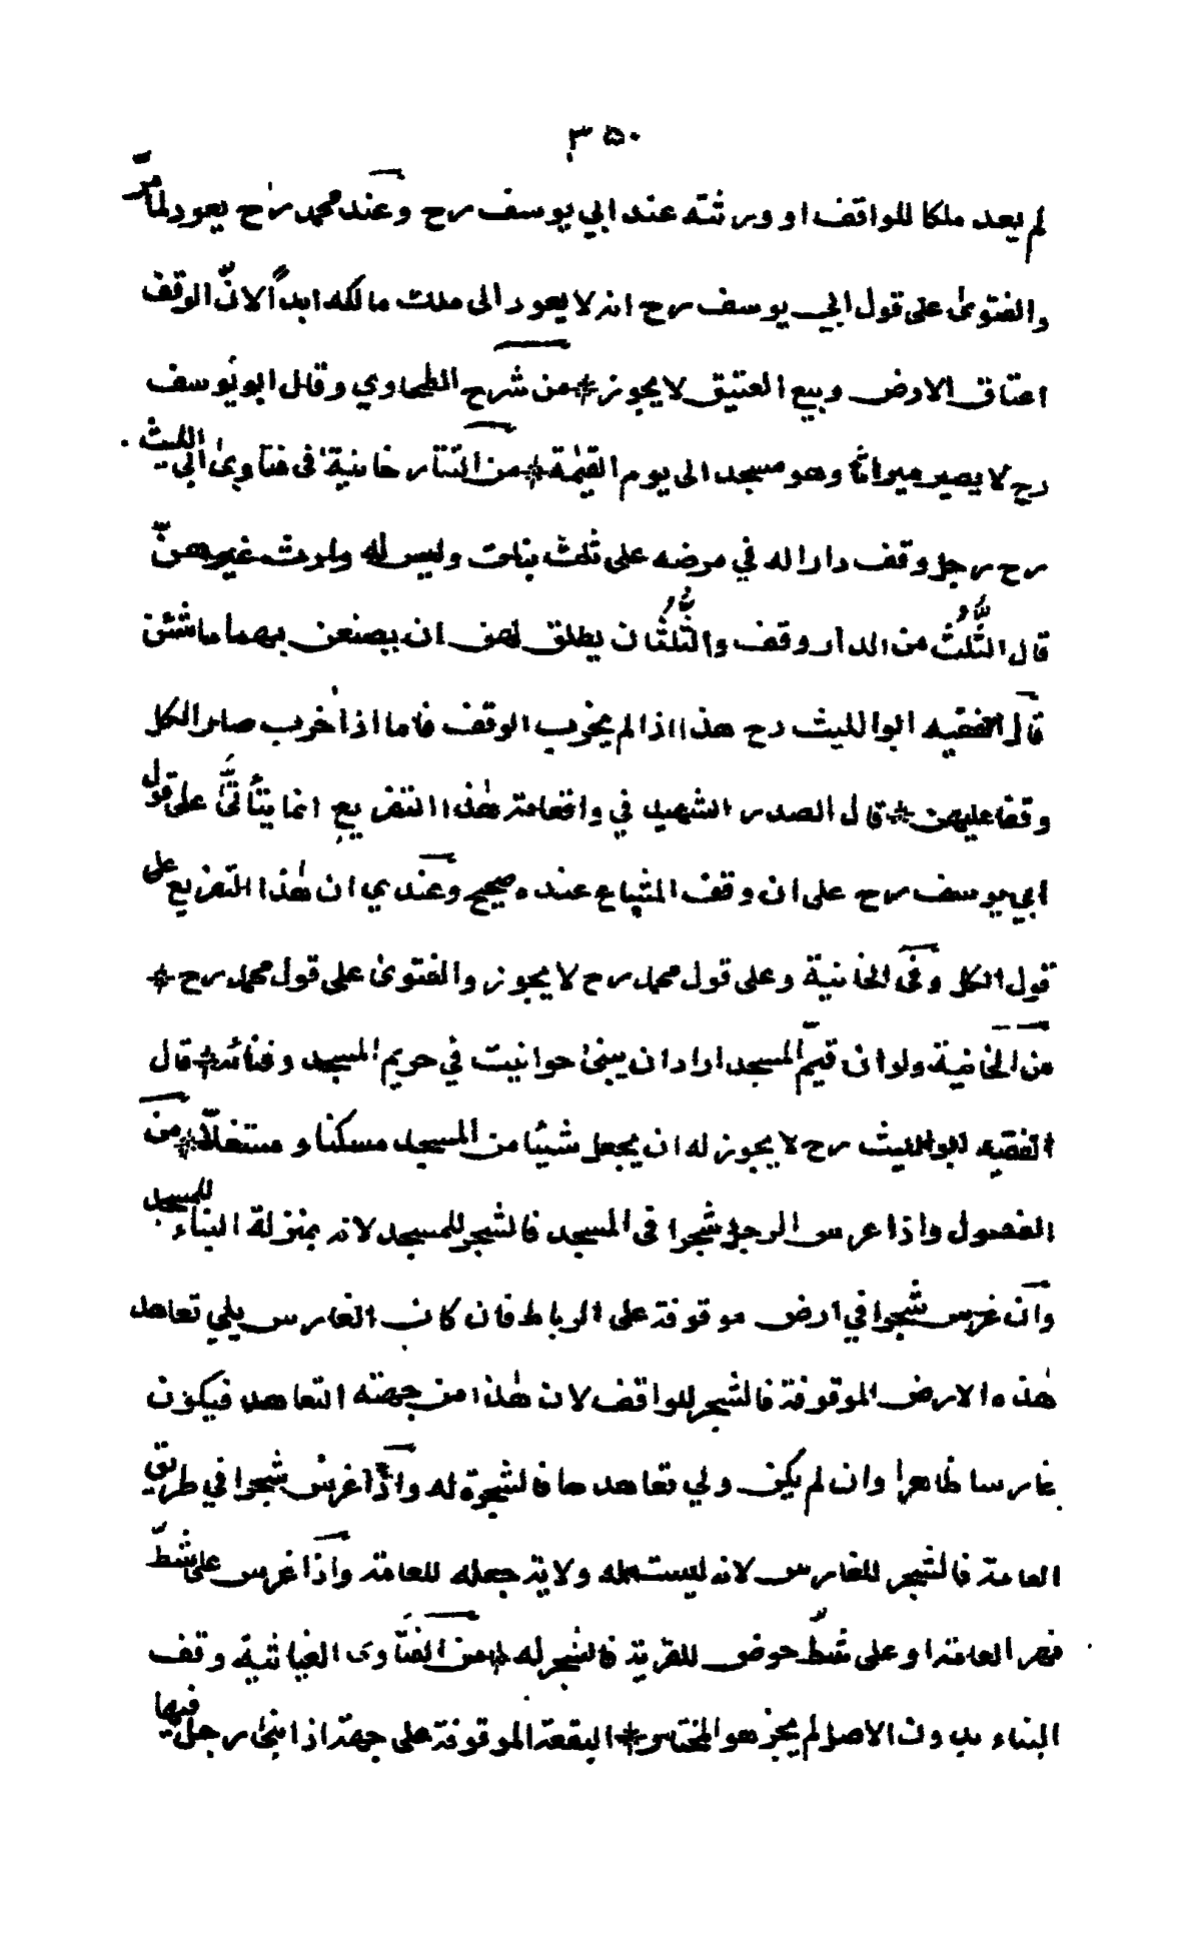 ٣٥٠
لم يعد ملكا للواقف او ورثته عند ابي يوسف رح وعند محمد رح يعود لما مرّ
والفتوىٰ على قول ابي يوسف رح انه لا يعود الى ملك مالكه ابداً لانّ الوقف
اعتاق الارض وبيع العتيق لا يجوز * من شرح الطحاوي وقال ابو يوسف
رح لا يصير ميراثا وهو مسجد الى يوم القيٰمة * من التتار خانية في فتاوىٰ ابي الليث
رح رجل وقف دارا له في مرضه على ثلث بنات وليس له وارث غيرهنّ
قال الثُّلُثُ من الدار وقف والثُّلُثان يطلق لهن ان يصنعن بهما ما شئن
قال الفقيه ابو الليث رح هذا اذا لم يخرب الوقف فاما اذا خرب صار الكل
وقفا عليهن * قال الصدر الشهيد في واقعاته هٰذا التفريع انما يتأتّىٰ على قول
ابي يوسف رح على ان وقف المشاع عنده صحيح وعندي ان هٰذا التفريع على
قول الكل وفي الخانية وعلى قول محمد رح لا يجوز والفتوىٰ على قول محمد رح *
من الخانية ولو ان قيّم المسجد اراد ان يبنىٰ حوانيت في حريم المسجد وفنائه * قال
الفقيه ابو الليث رح لا يجوز له ان يجعل شيئا من المسجد مسكنا و مستغلّا * من
الفصول واذا غرس الرجل شجرا في المسجد فالشجر للمسجد لانه بمنزلة البناء للمسجد
وان غرس شجرا في ارض موقوفة على الرباط فان كان الغارس يلي تعاهد
هٰذه الارض الموقوفة فالشجر للواقف لان هٰذا من جهته التعاهد فيكون
غارسا ظاهرا وان لم يكن ولي تعاهدها فالشجرة له واذا غرس شجرا في طريق
العامة فالشجر للغارس لانه ليست له ولاية جعله للعامة واذا غرس على شطّ
نهر العامة او على شطّ حوض للقرية فالشجر له * من الفتاوىٰ الغياثية وقف
البناء بدون الاصل لم يجز هو المختار * البقعة الموقوفة على جهة اذا بنىٰ رجل فيها